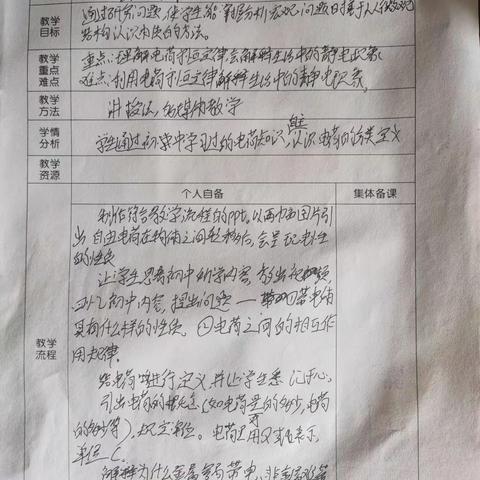 教学
目标
通过研究问题,使学生能掌握分析宏观问题时基于从微观
结构认识本质的方法。
教学
重点
难点
重点:理解电荷守恒定律,会解释生活中的静电现象
难点:利用电荷守恒定律解释生活中的静电现象。
教学
方法
讲授法,多媒体教学
学情
分析
学生通过初中学习过的电荷知识,认识电荷的分类定义
教学
资源
个人自备
集体备课
教学
流程
制作符合教学流程的PPt,以两张图片引
出自由电荷在物体之间转移后,会呈现电性
的性质
让学生思考初中所学内容,放出视频,
回忆初中内容,提出问题——①带电体
具有什么样的性质 ②电荷之间的相互作
用规律。
给电荷进行定义,并让学生熟记于心,
引出电荷的概念(如电荷量的多少,电荷
的多少等),规定单位。电荷量可用Q或q表示,
单位C。
解释为什么金属容易带电,非金属